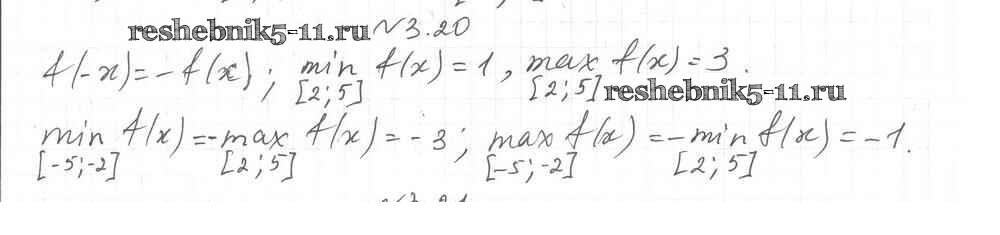 reshebnik5-11.ru №3.20
f(-x)=-f(x); min f(x)=1, max f(x)=3.
[2;5] [2;5] reshebnik5-11.ru
min f(x)=-max f(x)=-3; max f(x)=-min f(x)=-1.
[-5;-2] [2;5] [-5;-2] [2;5]